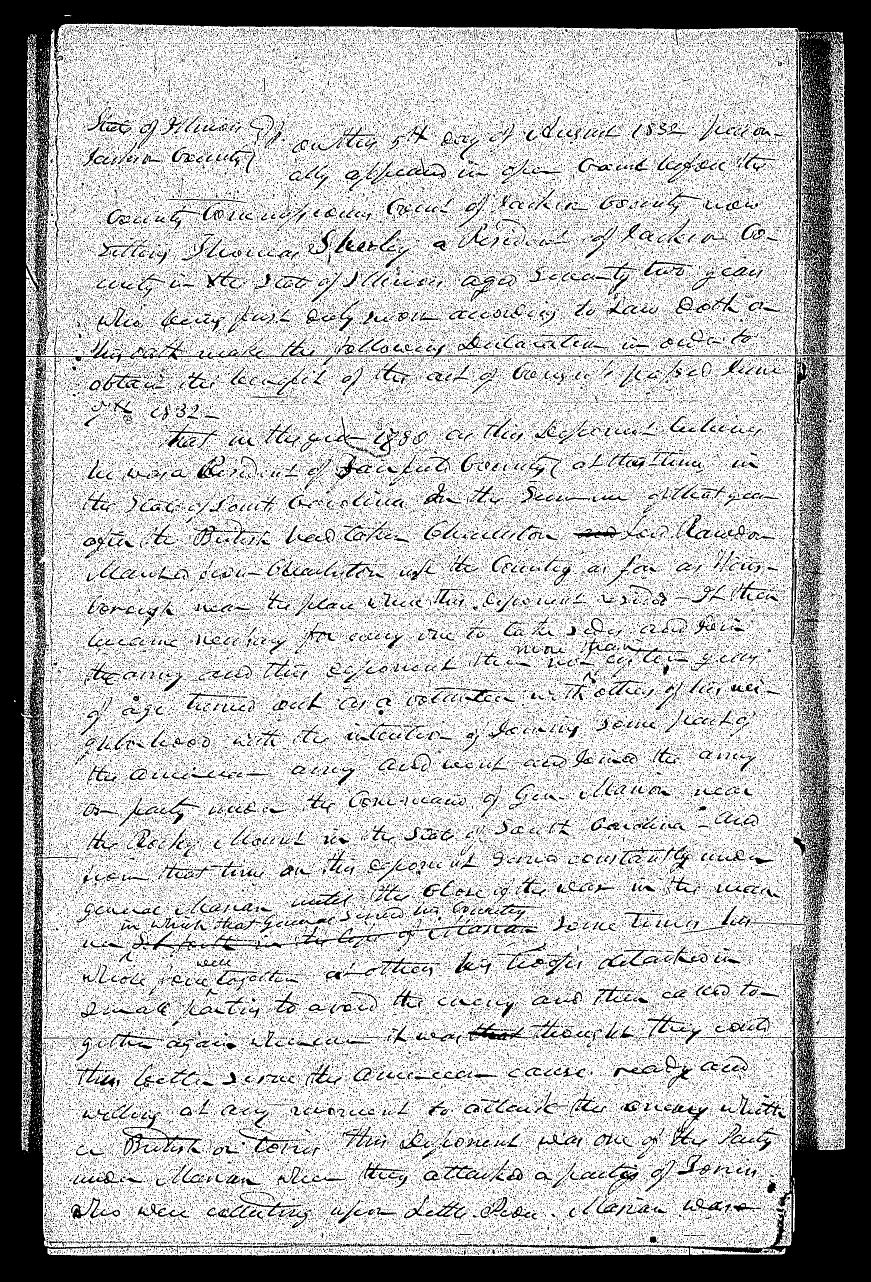 State of Illinois
Jackson County
on this 5th day of August 1832 person-
ally appeared in open Court before the
County Commissioners Court of Jackson County now
sitting Thomas Sherley a Resident of Jackson Co-
unty in the State of Illinois aged Seventy two years
who being first duly sworn according to Law doth on
his oath make the following Declaration in order to
obtain the benefit of the act of Congress passed June
7th 1832 -
That in the year 1780 as this Deponent believes
he was a Resident of Fairfield County (at that time in
the State of South Carolina In the Summer of that year
after the British had taken Charleston and Lord Rawdon
Marched from Charleston up the Country as far as Wins-
borough near the place where this deponent resided - It then
became necessary for every one to take sides and Join
the army and this deponent then more than eighteen years
of age turned out as a volunteer with others of his nei-
ghborhood with the intention of Joining some part of
the american army and went and Joined the army
or party under the Command of Gen Marion near
the Rocky Mount in the State of South Carolina - and
from that time on this deponent served constantly under
general Marion until the Close of the war in the man
in which that General served his Country
ner Set forth in the life of Marion some times his
whole force were together at others his troops detached in
small parties to avoid the enemy and then called to-
gether again whenever it was that thought they could
thus better serve the american cause ready and
willing at any moment to attack the enemy wheth
er British or tories This Deponent was one of the Party
under Marion when they attacked a party of Tories
who were collecting upon Little Pedee. Marion was